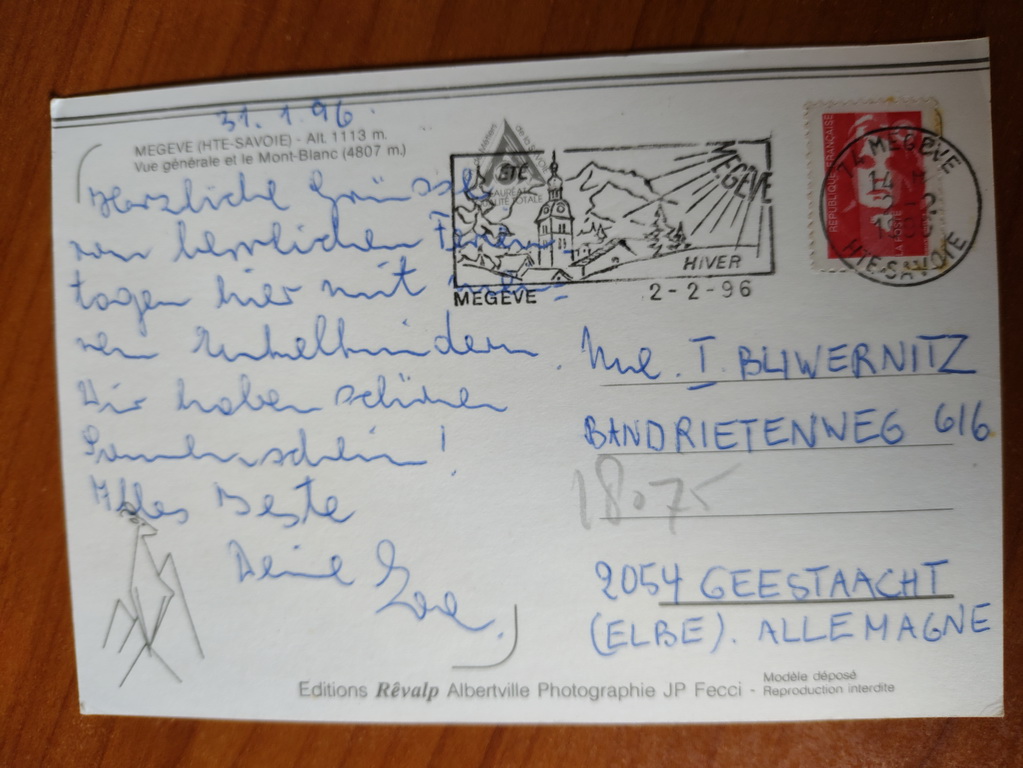 31. 1. 96.
MEGEVE (HTE-SAVOIE) - Alt. 1113 m.
Vue générale et le Mont-Blanc (4807 m.)
Herzliche Grüsse
von herrlichen Ferien-
tagen hier mit mei-
nen Enkelkindern
Wir haben schönen
Sonnenschein!
Alles Beste
Deine
ETC
MEGEVE
HIVER
MEGEVE 2-2-96
REPUBLIQUE FRANÇAISE
LA POSTE
74 MEGEVE
HTE-SAVOIE
Mme. I. BLIWERNITZ
BANDRIETENWEG 616
18075
2054 GEESTAACHT
(ELBE). ALLEMAGNE
Editions Rêvalp Albertville Photographie JP Fecci - Modèle déposé
Reproduction interdite